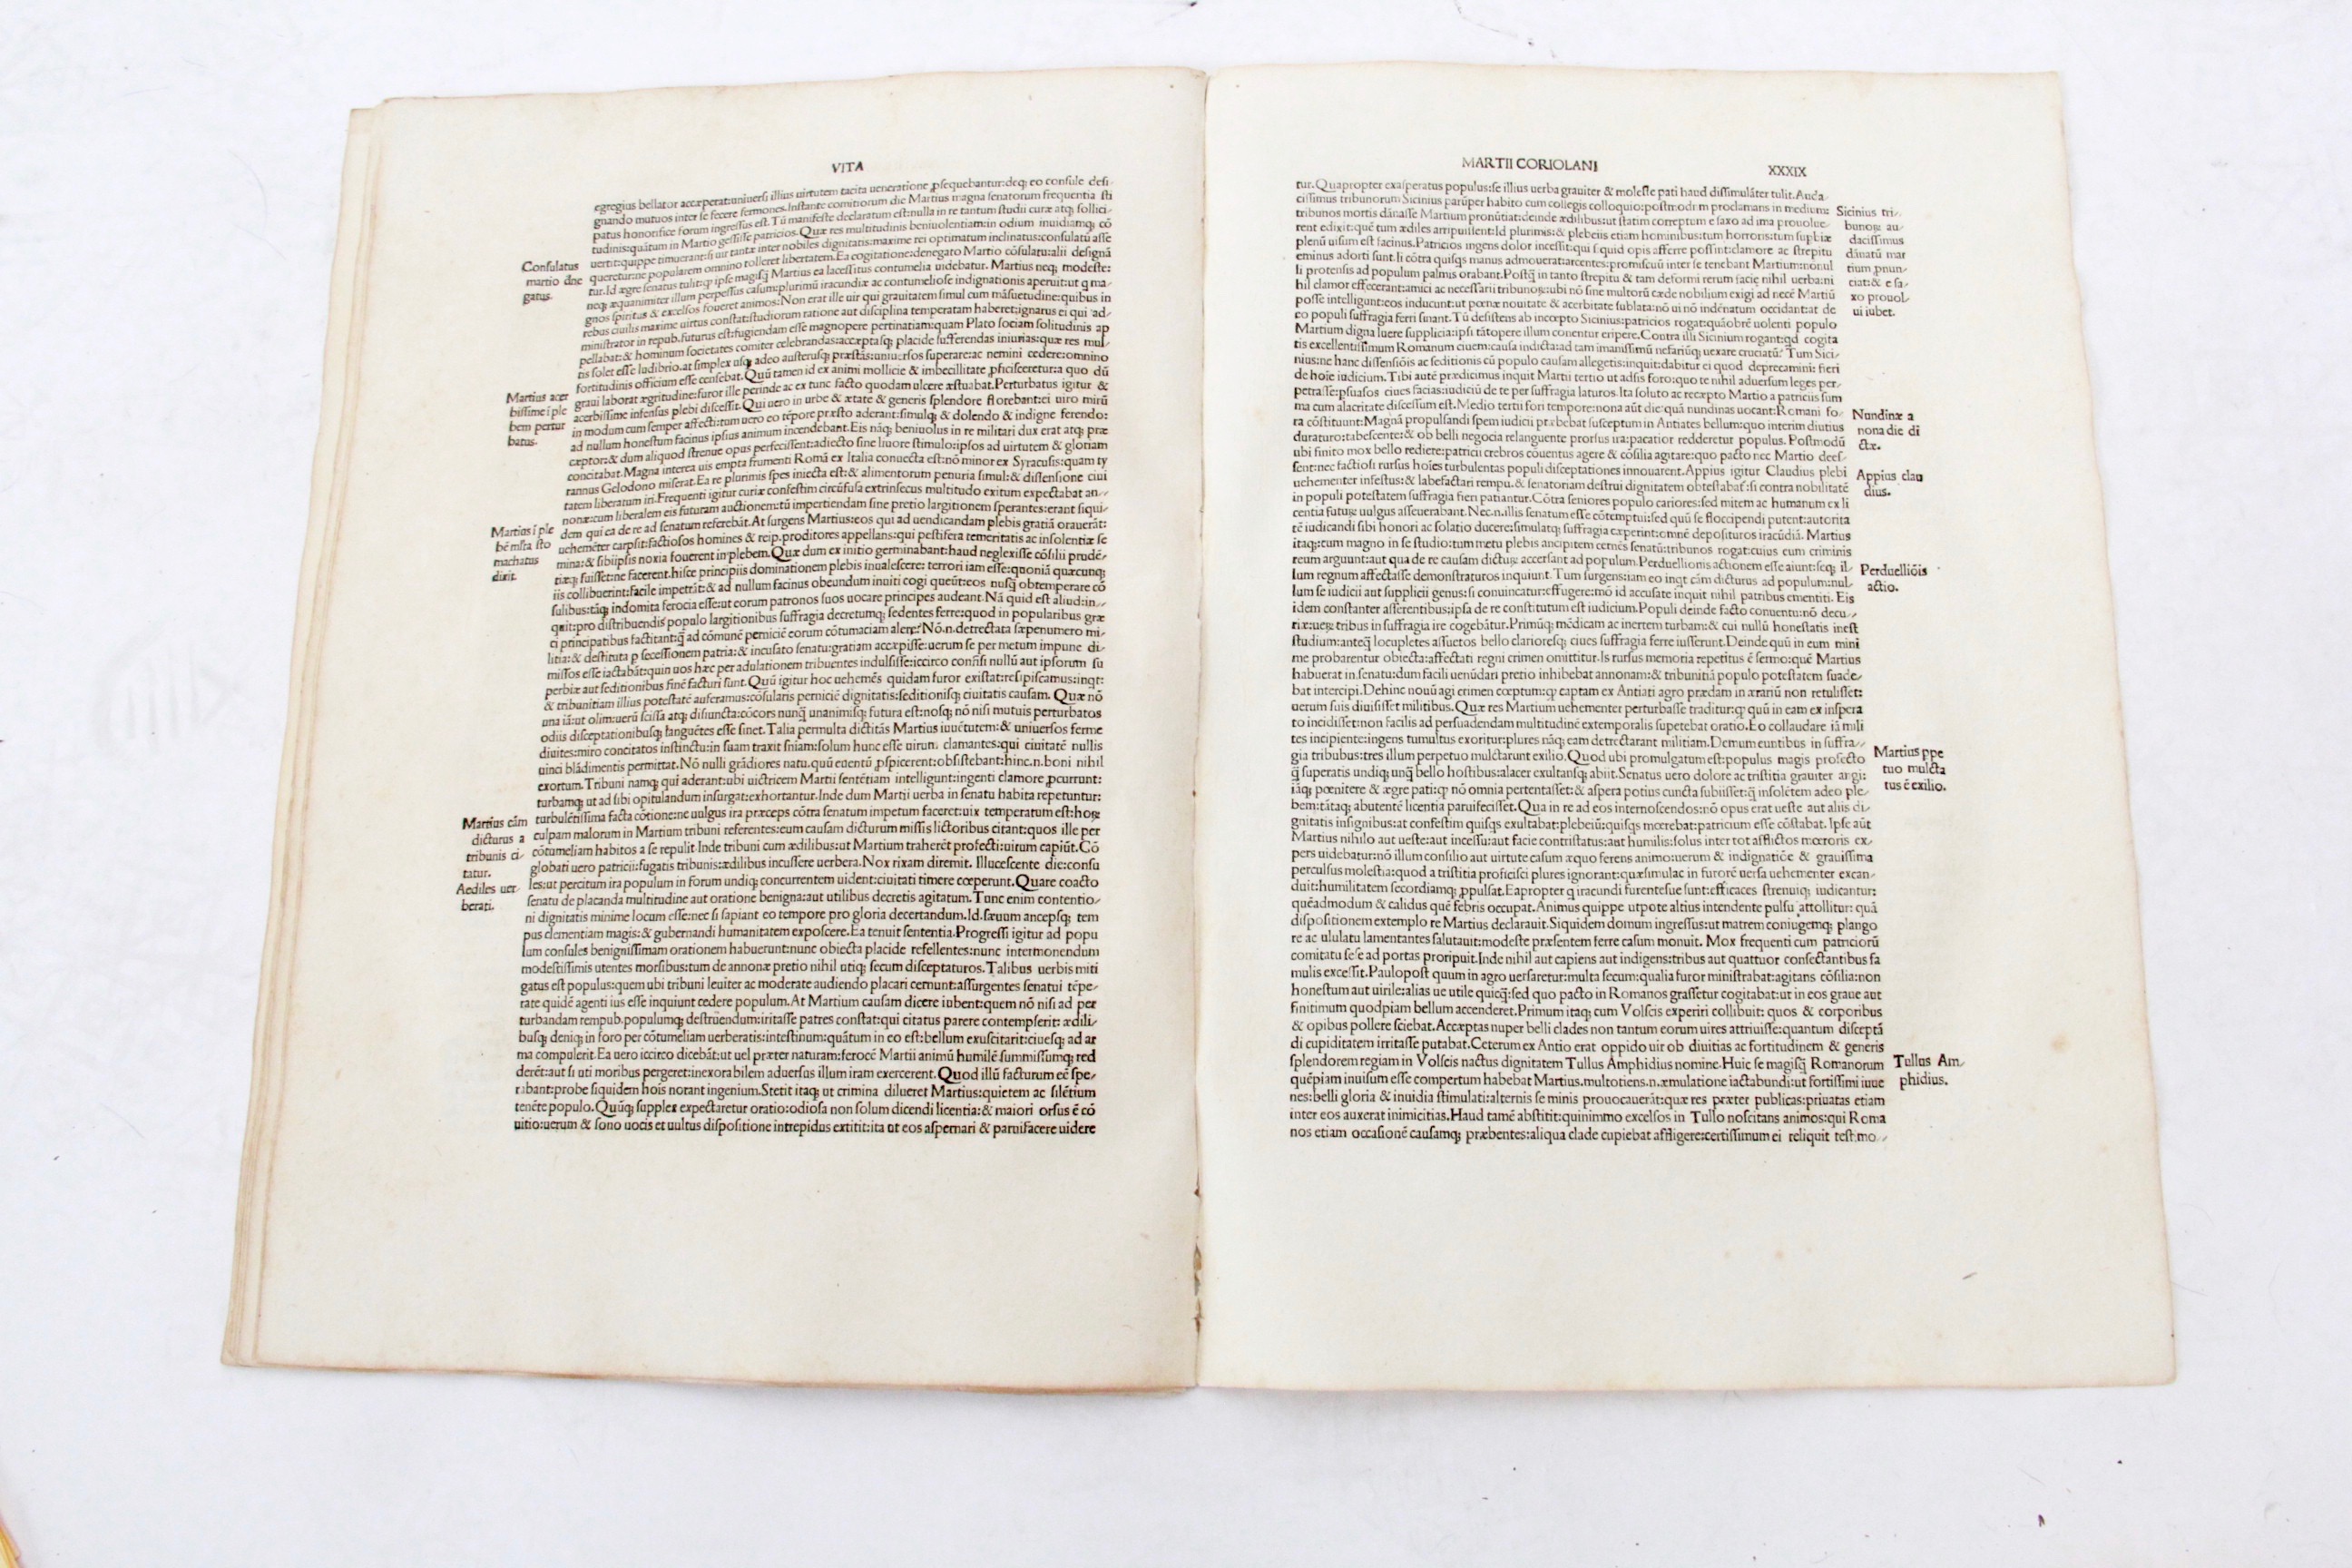 VITA
egregius bellator accæperat:uniuersi illius uirtutem tacita ueneratione ꝓsequebantur:deqꝫ eo consule desi-
gnando mutuos inter se fecere sermones.Instante comitiorum die Martius magna senatorum frequentia sti
patus honorifice forum ingressus est.Tū manifeste declaratum est:nulla in re tantum studii curæ atqꝫ sollici-
tudinis:quātum in Martio gessisse patricios.Quæ res multitudinis beniuolentiam:in odium inuidiamqꝫ cō
uertit:quippe timuerant:si uir tantæ inter nobiles dignitatis:maxime rei optimatum inclinatus:consulatū asse
queretur:ne popularem omnino tolleret libertatem.Ea cogitatione:denegato Martio cōsulatu:alii designā
tur.Id ægre senatus tulit:ꝙ ipse magisq̄ Martius ea lacessitus contumelia uidebatur. Martius neqꝫ modeste:
neqꝫ æquanimiter illum perpessus casum:plurimū iracundiæ ac contumeliose indignationis aperuit:ut q ma-
gnos spiritus & excelsos foueret animos:Non erat ille uir qui grauitatem simul cum māsuetudine:quibus in
rebus ciuilis maxime uirtus constat:studiorum ratione aut disciplina temperatam haberet:ignarus ei qui ad-
ministrator in repub.futurus est:fugiendam esse magnopere pertinatiam:quam Plato sociam solitudinis ap
pellabat:& hominum societates comiter celebrandas:accæptasqꝫ placide sufferendas iniurias:quæ res mul-
tis solet esse ludibrio.at simplex usqꝫ adeo austerusqꝫ præstās:uniuersos superare:ac nemini cedere:omnino
fortitudinis officium esse censebat.Quū tamen id ex animi mollicie & imbecillitate ꝓficisceretur:a quo dū
graui laborat ægritudine:furor ille perinde ac ex tunc facto quodam ulcere æstuabat.Perturbatus igitur &
acerbissime infensus plebi discessit.Qui uero in urbe & ætate & generis splendore florebant:ei uiro mirū
in modum cum semper affecti:tum uero eo tēpore præsto aderant:simulqꝫ & dolendo & indigne ferendo:
ad nullum honestum facinus ipsius animum incendebant.Eis nāqꝫ beniuolus in re militari dux erat atqꝫ præ
cæptor:& dum aliquod strenue opus perfecissent:adiecto sine liuore stimulo:ipsos ad uirtutem & gloriam
concitabat.Magna interea uis empta frumenti Romā ex Italia conuecta est:nō minor ex Syracusis:quam ty
rannus Gelodono miserat.Ea re plurimis spes iniecta est:& alimentorum penuria simul:& dissensione ciui
tatem liberatum iri.Frequenti igitur curiæ confestim circūfusa extrinsecus multitudo exitum expectabat an-
nonæ:cum liberalem eis futuram auctionem:tū impertiendam sine pretio largitionem sperantes:erant siqui-
dem qui ea de re ad senatum referebāt.At surgens Martius:eos qui ad uendicandam plebis gratiā orauerāt:
uehemēter carpsit:factiosos homines & reip.proditores appellans:qui pestifera temeritatis ac insolentiæ se
mina:& sibiipsis noxia fouerent in plebem.Quæ dum ex initio germinabant:haud neglexisse cōsilii prudē-
tiæqꝫ fuisset:ne facerent.hisce principiis dominationem plebis inualescere:terrori iam esse:quoniā quæcunqꝫ
iis collibuerint:facile impetrāt:& ad nullum facinus obeundum inuiti cogi queūt:eos nusq̄ obtemperare cō
sulibus:tāqꝫ indomita ferocia esse:ut eorum patronos suos uocare principes audeant.Nā quid est aliud:in-
quit:pro distribuendis populo largitionibus suffragia decretumqꝫ sedentes ferre:quod in popularibus græ
ci principatibus factitant:q̄ ad cōmunē perniciē eorum cōtumaciam alere?Nō.n.detrectata sæpenumero mi-
litia:& destituta ꝑ secessionem patria:& incusato senatu:gratiam accæpisse:uerum se per metum impune di-
missos esse iactabāt:quin uos hæc per adulationem tribuentes indulsisse:iccirco confisi nullū aut ipsorum su
perbiæ aut seditionibus finē facturi sunt.Quū igitur hoc uehemēs quidam furor existat:resipiscamus:inqt:
& tribunitiam illius potestatē auferamus:cōsularis perniciē dignitatis:seditionisqꝫ ciuitatis causam. Quæ nō
una iā:ut olim:uerū scissa atqꝫ disiuncta:cōcors nunq̄ unanimisqꝫ futura est:nosqꝫ nō nisi mutuis perturbatos
odiis disceptationibusqꝫ languētes esse sinet.Talia permulta dictitās Martius iuuētutem:& uniuersos ferme
diuites:miro concitatos instinctu:in suam traxit sniam:solum hunc esse uirum clamantes:qui ciuitatē nullis
uinci blādimentis permittat.Nō nulli grādiores natu.quū euentū ꝓspicerent:obsistebant:hinc.n.boni nihil
exortum.Tribuni namqꝫ qui aderant:ubi uictricem Martii sentētiam intelligunt:ingenti clamore ꝓcurrunt:
turbamqꝫ ut ad sibi opitulandum insurgat:exhortantur.Inde dum Martii uerba in senatu habita repetuntur:
turbulētissima facta cōtione:ne uulgus ira præceps cōtra senatum impetum faceret:uix temperatum est:hoꝝ
culpam malorum in Martium tribuni referentes:eum causam dicturum missis lictoribus citant:quos ille per
cōtumeliam habitos a se repulit.Inde tribuni cum ædilibus:ut Martium traherēt profecti:uirum capiūt.Cō
globati uero patricii:fugatis tribunis:ædilibus incussere uerbera.Nox rixam diremit. Illucescente die:consu
les:ut percitum ira populum in forum undiqꝫ concurrentem uident:ciuitati timere cœperunt.Quare coacto
senatu de placanda multitudine aut oratione benigna:aut utilibus decretis agitatum.Tunc enim contentio-
ni dignitatis minime locum esse:nec si sapiant eo tempore pro gloria decertandum.Id.sæuum ancepsqꝫ tem
pus clementiam magis:& gubernandi humanitatem exposcere.Ea tenuit sententia.Progressi igitur ad popu
lum consules benignissimam orationem habuerunt:nunc obiecta placide refellentes:nunc intermonendum
modestissimis utentes morsibus:tum de annonæ pretio nihil utiqꝫ secum disceptaturos.Talibus uerbis miti
gatus est populus:quem ubi tribuni leuiter ac moderate audiendo placari cernunt:assurgentes senatui tēpe-
rate quidē agenti ius esse inquiunt cedere populum.At Martium causam dicere iubent:quem nō nisi ad per
turbandam rempub.populumqꝫ destruendum:iritasse patres constat:qui citatus parere contempserit: ædili-
busqꝫ deniqꝫ in foro per cōtumeliam uerberatis:intestinum:quātum in eo est:bellum exuscitarit:ciuesqꝫ ad ar
ma compulerit.Ea uero iccirco dicebāt:ut uel præter naturam:ferocē Martii animū humilē summissumqꝫ red
derēt:aut si uti moribus pergeret:inexorabilem aduersus illum iram exercerent.Quod illū facturum eē spe-
rabant:probe siquidem hois notant ingenium.Stetit itaqꝫ ut crimina dilueret Martius:quietem ac silētium
tenēte populo.Quūqꝫ supplex expectaretur oratio:odiosa non solum dicendi licentia:& maiori orsus ē cō
uitio:uerum & sono uocis et uultus dispositione intrepidus extitit:ita ut eos aspernari & paruifacere uidere
Consulatus
martio dne
gatus.
Martius acer
bissime i ple
bem pertur
batus.
Martius ī ple
bē mlta sto
machatus
dixit.
Martius cām
dicturus a
tribunis ci-
tatur.
Aediles uer-
berati.
MARTII CORIOLANI
XXXIX
tur.Quapropter exasperatus populus:se illius uerba grauiter & moleste pati haud dissimulāter tulit.Auda-
cissimus tribunorum Sicinius parūper habito cum collegis colloquio:postmodum proclamans in medium:
tribunos mortis dānasse Martium pronūtiat:deinde ædilibus:ut statim correptum e saxo ad ima prouolue-
rent edixit:quē tum ædiles arripuissent:Id plurimis:& plebeiis etiam hominibus:tum horroris:tum supbiæ
plenū uisum est facinus.Patricios ingens dolor incessit:qui si quid opis afferre possint:clamore ac strepitu
eminus adorti sunt.Ii cōtra quisqs manus admouerat:arcentes:promiscuū inter se tenebant Martium:nonul
li protensis ad populum palmis orabant.Postq̄ in tanto strepitu & tam deformi rerum facie nihil uerba:ni
hil clamor effecerant:amici ac necessarii tribunoꝝ:ubi nō sine multorū cæde nobilium exigi ad necē Martiū
posse intelligunt:eos inducunt:ut pœnæ nouitate & acerbitate sublata:nō ui nō indēnatum occidant:at de
eo populi suffragia ferri sinant.Tū desistens ab incœpto Sicinius:patricios rogat:quāobrē uolenti populo
Martium digna luere supplicia:ipsi tātopere illum conentur eripere.Contra illi Sicinium rogant:qd cogita
tis excellentissimum Romanum ciuem:causa indicta:ad tam imanissimū nefariūqꝫ uexare cruciatū? Tum Sici-
nius:ne hanc dissensiōis ac seditionis cū populo causam allegetis:inquit:dabitur ei quod deprecamini: fieri
de hoīe iudicium.Tibi autē prædicimus inquit Martii tertio ut adsis foro:quo te nihil aduersum leges per-
petrasse:psuasos ciues facias:iudiciū de te per suffragia laturos.Ita soluto ac recæpto Martio a patriciis sum
ma cum alacritate discessum est.Medio tertii fori tempore:nona aūt die:quā nundinas uocant:Romani fo-
ra cōstituunt:Magnā propulsandi spem iudicii præbebat susceptum in Antiates bellum:quo interim diutius
duraturo:tabescente:& ob belli negocia relanguente prorsus ira:pacatior redderetur populus. Postmodū
ubi finito mox bello rediere:patricii crebros cōuentus agere & cōsilia agitare:quo pacto nec Martio dees-
sent:nec factiosi rursus hoīes turbulentas populi disceptationes innouarent.Appius igitur Claudius plebi
uehementer infestus:& labefactari rempu.& senatoriam destrui dignitatem obtestabat:si contra nobilitatē
in populi potestatem suffragia fieri patiantur.Cōtra seniores populo cariores:sed mitem ac humanum ex li
centia futuꝝ uulgus asseuerabant.Nec.n.illis senatum esse cōtemptui:sed quū se floccipendi putent:autorita
tē iudicandi sibi honori ac solatio ducere:simulatqꝫ suffragia cæperint:omnē deposituros iracūdiā. Martius
itaqꝫ:tum magno in se studio:tum metu plebis ancipitem cernēs senatū:tribunos rogat:cuius eum criminis
reum arguunt:aut qua de re causam dictuꝝ accersant ad populum.Perduellionis actionem esse aiunt:seqꝫ il-
lum regnum affectasse demonstraturos inquiunt.Tum surgens:iam eo inqt cām dicturus ad populum:nul-
lum se iudicii aut supplicii genus:si conuincatur:effugere:mō id accusate inquit nihil patribus ementiti. Eis
idem constanter asserentibus:ipsa de re constitutum est iudicium.Populi deinde facto conuentu:nō decu-
riæ:ueꝝ tribus in suffragia ire cogebātur.Primūqꝫ mēdicam ac inertem turbam:& cui nullū honestatis inest
studium:anteq̄ locupletes assuetos bello clarioresqꝫ ciues suffragia ferre iusserunt.Deinde quū in eum mini
me probarentur obiecta:affectati regni crimen omittitur.Is rursus memoria repetitus ē sermo:quē Martius
habuerat in senatu:dum facili uenūdari pretio inhibebat annonam:& tribunitiā populo potestatem suade-
bat intercipi.Dehinc nouū agi crimen cœptum:ꝙ captam ex Antiati agro prædam in ærariū non retulisset:
uerum suis diuisisset militibus.Quæ res Martium uehementer perturbasse traditur:ꝙ quū in eam ex inspera
to incidisset:non facilis ad persuadendam multitudinē extemporalis supetebat oratio.Eo collaudare iā mili
tes incipiente:ingens tumultus exoritur:plures nāqꝫ eam detrectarant militiam.Demum euntibus in suffra-
gia tribubus:tres illum perpetuo mulctarunt exilio. Quod ubi promulgatum est:populus magis profecto
q̄ superatis undiqꝫ unq̄ bello hostibus:alacer exultansqꝫ abiit.Senatus uero dolore ac tristitia grauiter angi:
iāqꝫ pœnitere & ægre pati:ꝙ nō omnia pertentasset:& aspera potius cuncta subiisset:q̄ insolētem adeo ple-
bem:tātaqꝫ abutentē licentia paruifecisset.Qua in re ad eos internoscendos:nō opus erat ueste aut aliis di-
gnitatis insignibus:at confestim quisqs exultabat:plebeiū:quisqs mœrebat:patricium esse cōstabat. Ipse aūt
Martius nihilo aut ueste:aut incessu:aut facie contristatus:aut humilis:solus inter tot afflictos mœroris ex-
pers uidebatur:nō illum consilio aut uirtute casum æquo ferens animo:uerum & indignatiōe & grauissima
perculsus molestia:quod a tristitia proficisci plures ignorant:quæsimulac in furorē uersa uehementer excan-
duit:humilitatem secordiamqꝫ ꝓpulsat.Eapropter q iracundi furentesue sunt:efficaces strenuiqꝫ iudicantur:
quēadmodum & calidus quē febris occupat.Animus quippe utpote altius intendente pulsu attollitur: quā
dispositionem extemplo re Martius declarauit.Siquidem domum ingressus:ut matrem coniugemqꝫ plango
re ac ululatu lamentantes salutauit:modeste præsentem ferre casum monuit. Mox frequenti cum patriciorū
comitatu sese ad portas proripuit.Inde nihil aut capiens aut indigens:tribus aut quattuor consectantibus fa
mulis excessit.Paulopost quum in agro uersaretur:multa secum:qualia furor ministrabat:agitans cōsilia:non
honestum aut uirile:alias ue utile quicq̄:sed quo pacto in Romanos grassetur cogitabat:ut in eos graue aut
finitimum quodpiam bellum accenderet.Primum itaqꝫ cum Volscis experiri collibuit: quos & corporibus
& opibus pollere sciebat.Accæptas nuper belli clades non tantum eorum uires attriuisse:quantum disceptā
di cupiditatem irritasse putabat.Ceterum ex Antio erat oppido uir ob diuitias ac fortitudinem & generis
splendorem regiam in Volscis nactus dignitatem Tullus Amphidius nomine.Huic se magisq̄ Romanorum
quēpiam inuisum esse compertum habebat Martius.multotiens.n.æmulatione iactabundi:ut fortissimi iuue
nes:belli gloria & inuidia stimulati:alternis se minis prouocauerāt:quæ res præter publicas:priuatas etiam
inter eos auxerat inimicitias.Haud tamē abstitit:quinimmo excelsos in Tullo noscitans animos:qui Roma
nos etiam occasionē causamqꝫ præbentes:aliqua clade cupiebat affligere:certissimum ei reliquit test.mo-
Sicinius tri-
bunoꝝ au-
dacissimus
dānatū mar
tium ꝓnun-
ciat:& e sa-
xo prouol
ui iubet.
Nundinæ a
nona die di
ctæ.
Appius clau
dius.
Perduelliōis
actio.
Martius ppe
tuo mulcta
tus ē exilio.
Tullus Am-
phidius.